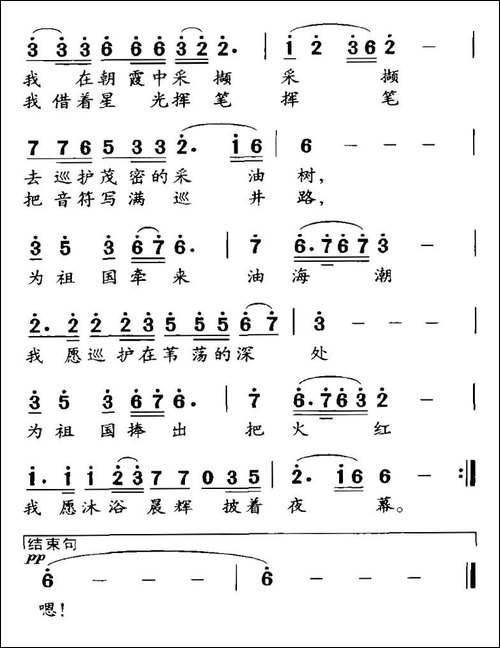 3 33 6 66 322. | 1 2 362 — |
我 在朝 霞中采 撷 采 撷
我借着星 光挥笔 挥 笔
7 76 5 33 2. 16 | 6 — — — |
去巡护茂密的采 油 树，
把音符写满 巡 井 路，
3 5 3 676. | 7 6.7673 — |
为祖 国牵来 油 海 潮
2. 2 2 23 5 55 67 | 3 — — — |
我 愿巡 护在苇荡的深 处
3 5 3 676. | 7 6.7632 — |
为祖 国捧出 把 火 红
1. 1 1 23 7 7 0 35 | 2. 16 6 — :||
我 愿沐浴 晨辉 披着 夜 幕。
结束句
pp
6 — — — | 6 — — — ||
嗯！